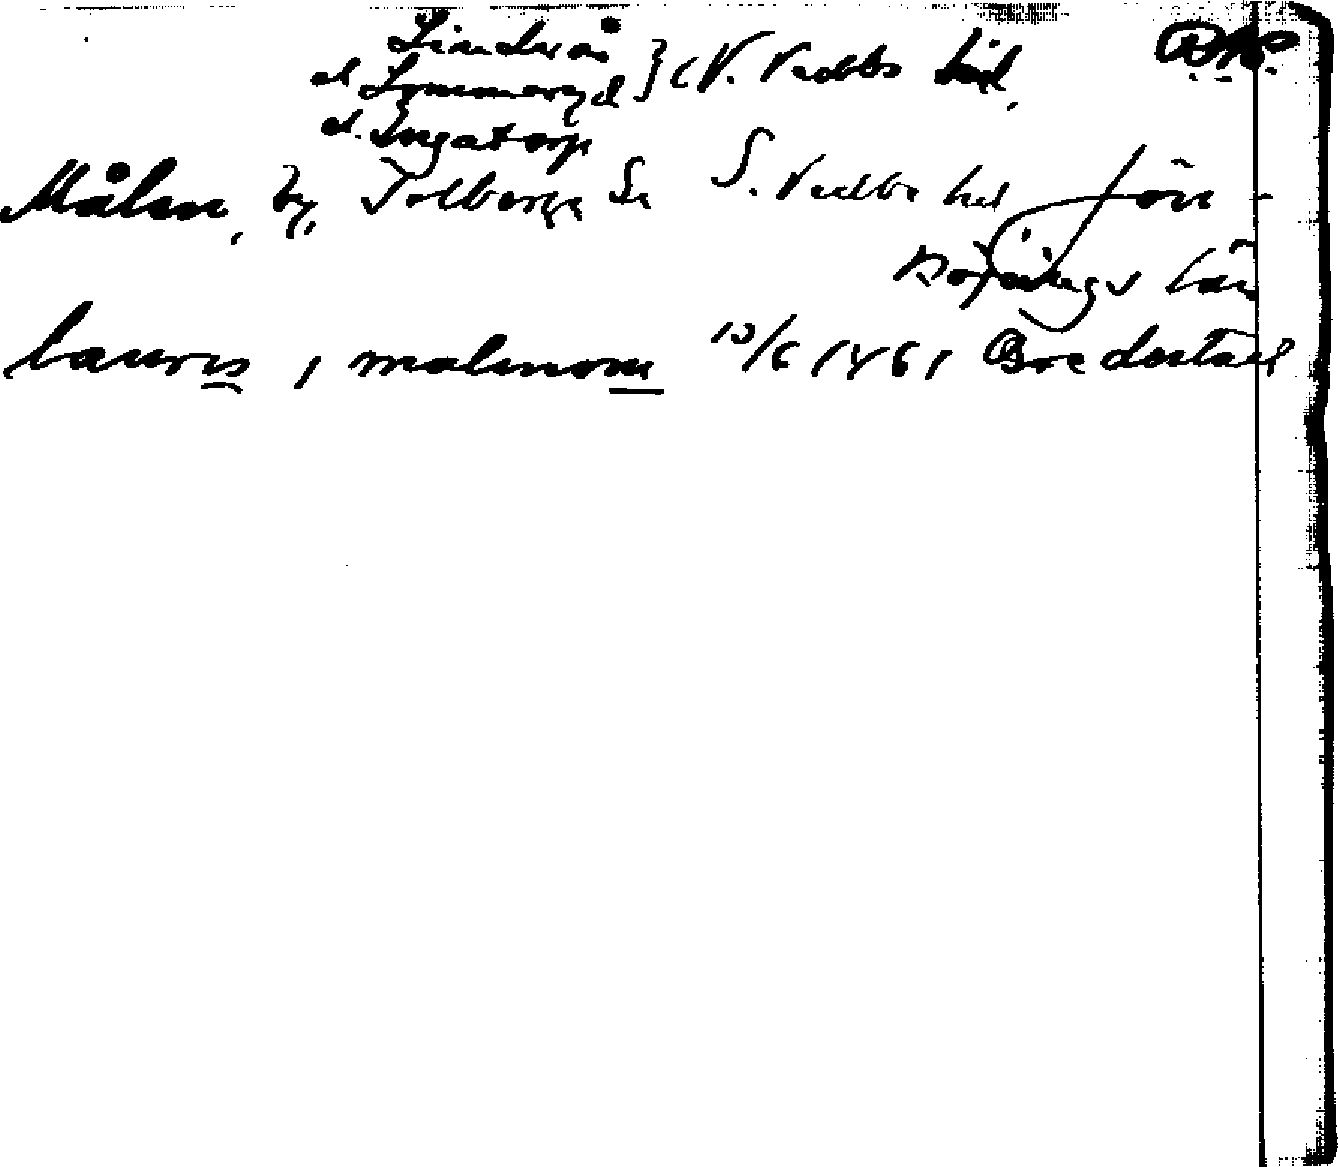 Lindsås
el Lommaryd } (N. Vedbo hd,
el. Ingatorp
Målen, by, Solberga Sn S. Vedbo hd Jön-
köpings län
lauris i malmom 10/6 1461 Bredestad